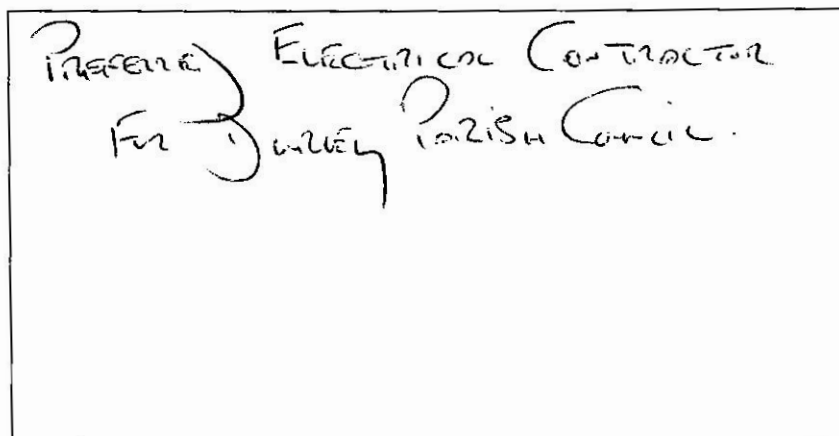 PREFERRED ELECTRICAL CONTRACTOR
FOR DURLEY PARISH COUNCIL.